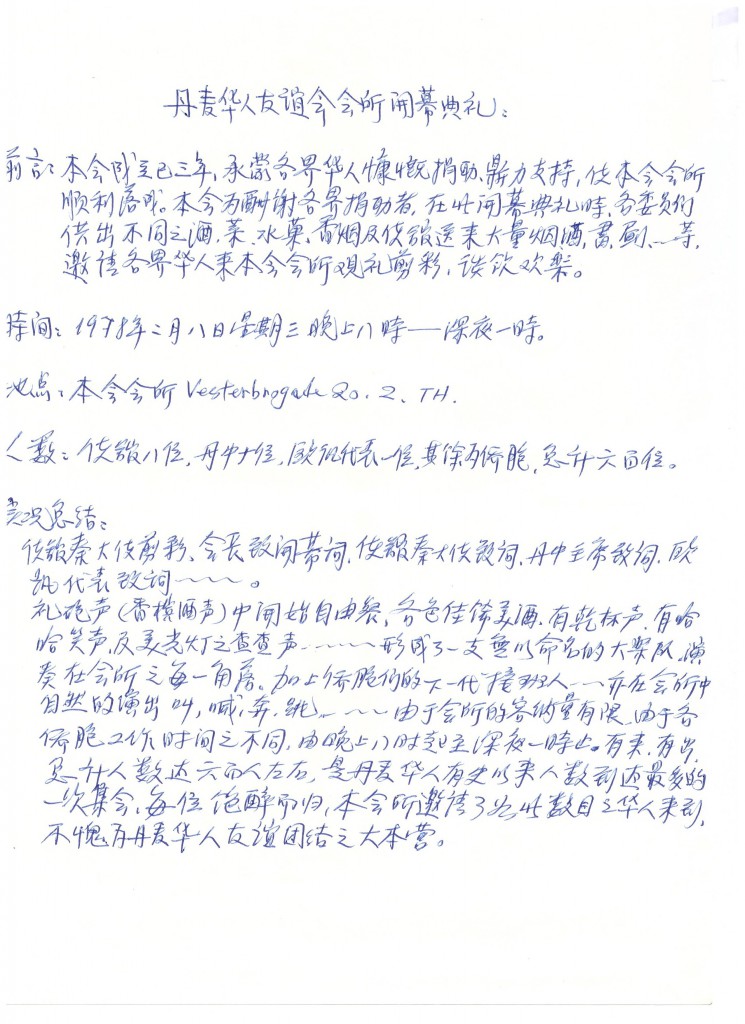 丹麦华人友谊会会所开幕典礼:
前言: 本会成立已三年,承蒙各界华人慷慨捐助、鼎力支持,使本会会所
顺利落成。本会为酬谢各界捐助者,在此开幕典礼时,各委员们
供出不同之酒、菜、水菓、香烟及使舘送来大量烟酒,書、画、一等,
邀请各界华人来本会会所观礼剪彩,谈饮欢乐。
時间: 1978年二月八日星期三晚上八時——深夜一時。
地点: 本会会所 Vesterbrogade 20. 2. TH.
人数: 使舘八位,丹中十位,欧讯代表一位,其馀为侨胞,总计六百位。
实况总结:
使舘秦大使剪彩、会长致开幕词、使舘秦大使致词、丹中主席致词、欧
讯代表致词~~~~。
礼砲声(香槟酒声)中开始自由餐,各色佳馀美酒,有乾杯声,有哈
哈笑声,及美光灯之查查声……形成了一支无以命名的大乐队,演
奏在会所之每一角落。加上侨胞们的下一代"接班人"……亦在会所中
自然的演出叫,喊,奔,跳,~~~由于会所的客纳量有限,由于各
侨胞工作时间之不同,由晚上八时起至深夜一時止。有来,有出,
总计人数达六百人左右,是丹麦华人有史以来人数到达最多的
一次集会,每位饱醉而归,本会所邀请了如此数目之华人来到,
不愧为丹麦华人友谊团结之大本营。